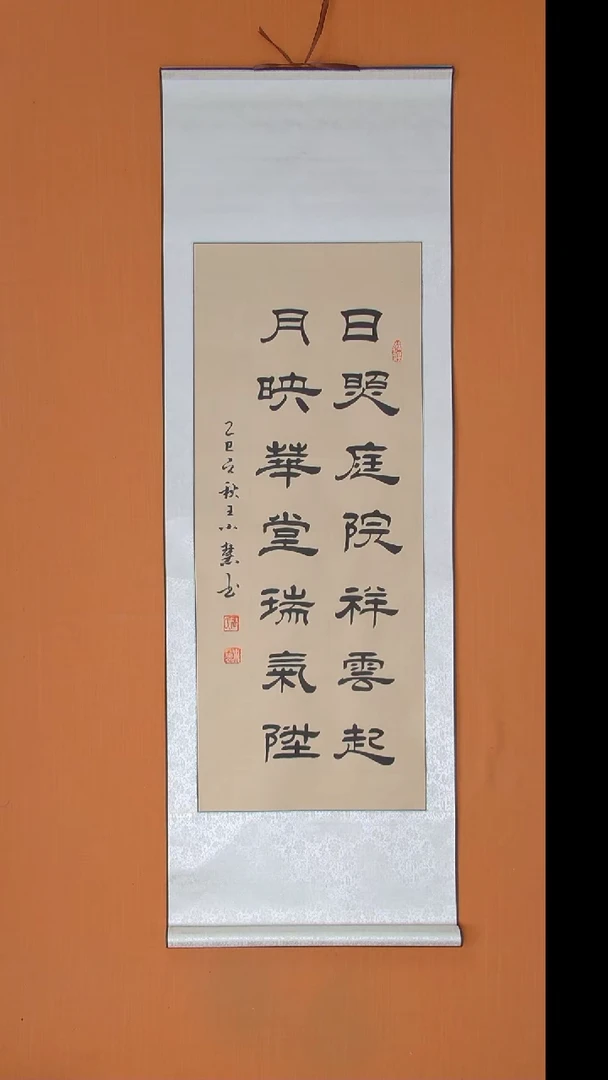 日照庭院祥雲起
月映華堂瑞氣陞
乙巳之秋王小慧书